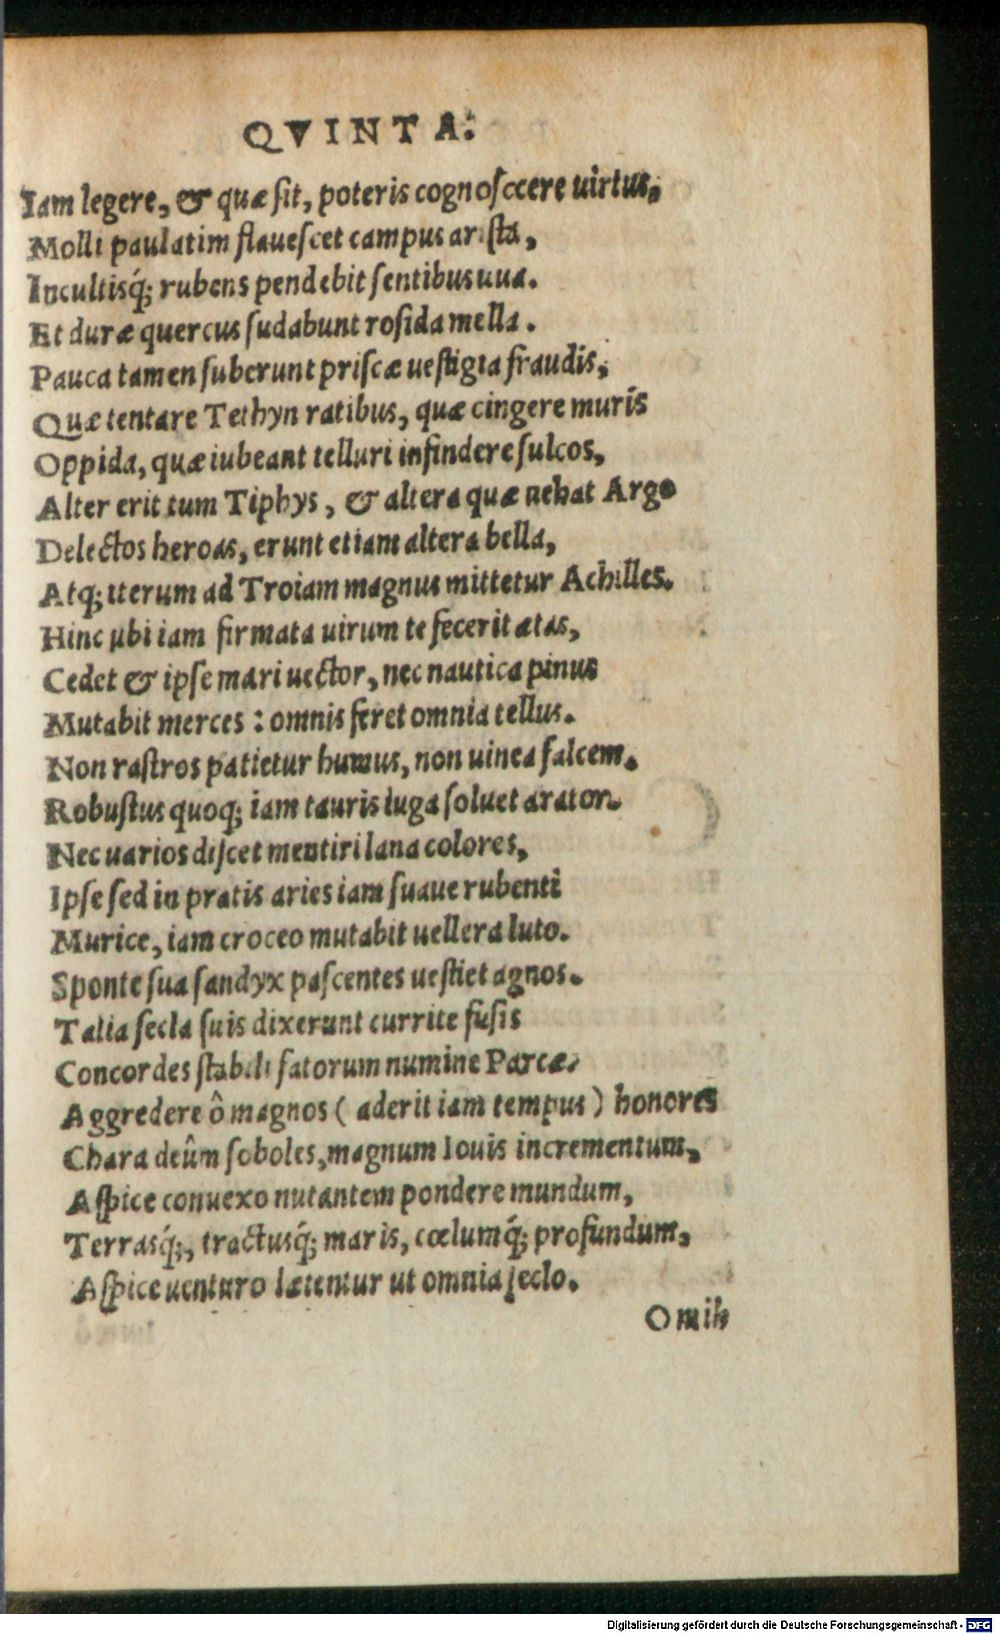 QVINTA.
Iam legere, & quæ sit, poteris cognosccere uirtus,
Molli paulatim flauescet campus arista,
Incultisq́; rubens pendebit sentibus uua.
Et duræ quercus sudabunt rosida mella.
Pauca tamen suberunt priscæ uestigia fraudis,
Quæ tentare Tethyn ratibus, quæ cingere muris
Oppida, quæ iubeant telluri infindere sulcos,
Alter erit tum Tiphys, & altera quæ uehat Argo
Delectos heroas, erunt etiam altera bella,
Atq; iterum ad Troiam magnus mittetur Achilles.
Hinc ubi iam firmata uirum te fecerit ætas,
Cedet & ipse mari uector, nec nautica pinus
Mutabit merces : omnis feret omnia tellus.
Non rastros patietur humus, non uinea falcem.
Robustus quoq; iam tauris iuga soluet arator.
Nec uarios discet mentiri lana colores,
Ipse sed in pratis aries iam suaue rubenti
Murice, iam croceo mutabit uellera luto.
Sponte sua sandyx pascentes uestiet agnos.
Talia secla suis dixerunt currite fusis
Concordes stabili fatorum numine Parcæ.
Aggredere ô magnos ( aderit iam tempus ) honores
Chara deûm soboles, magnum Iouis incrementum,
Aspice conuexo nutantem pondere mundum,
Terrasq́;, tractusq́; maris, cœlumq́; profundum,
Aspice uenturo lætentur ut omnia seclo.
Omih
Digitalisierung gefördert durch die Deutsche Forschungsgemeinschaft - DFG